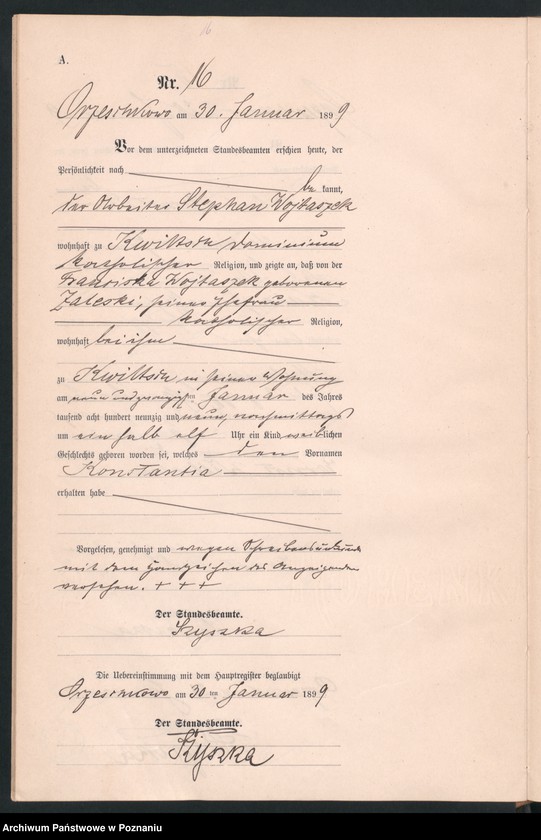 16
A.
Nr. 16
Orzeschkowo am 30. Januar 1899
Vor dem unterzeichneten Standesbeamten erschien heute, der
Persönlichkeit nach be kannt,
der Arbeiter Stephan Wojtaszek
wohnhaft zu Kwiltsch Dominium
katholischer Religion, und zeigte an, daß von der
Franciska Wojtaszek geborenen
Zaleski, seiner Ehefrau
katholischer Religion,
wohnhaft bei ihm
zu Kwiltsch in seiner Wohnung
am neun und zwanzigsten Januar des Jahres
tausend acht hundert neunzig und neun, vormittags
um ein halb elf Uhr ein Kind weiblichen
Geschlechts geboren worden sei, welches den Vornamen
Konstantia
erhalten habe
Vorgelesen, genehmigt und wegen Schreibensunkunde
mit dem Handzeichen des Anzeigenden
versehen. + + +
Der Standesbeamte.
Kyszka
Die Uebereinstimmung mit dem Hauptregister beglaubigt
Orzeschkowo am 30 ten Januar 1899
Der Standesbeamte.
Kyszka
Archiwum Państwowe w Poznaniu